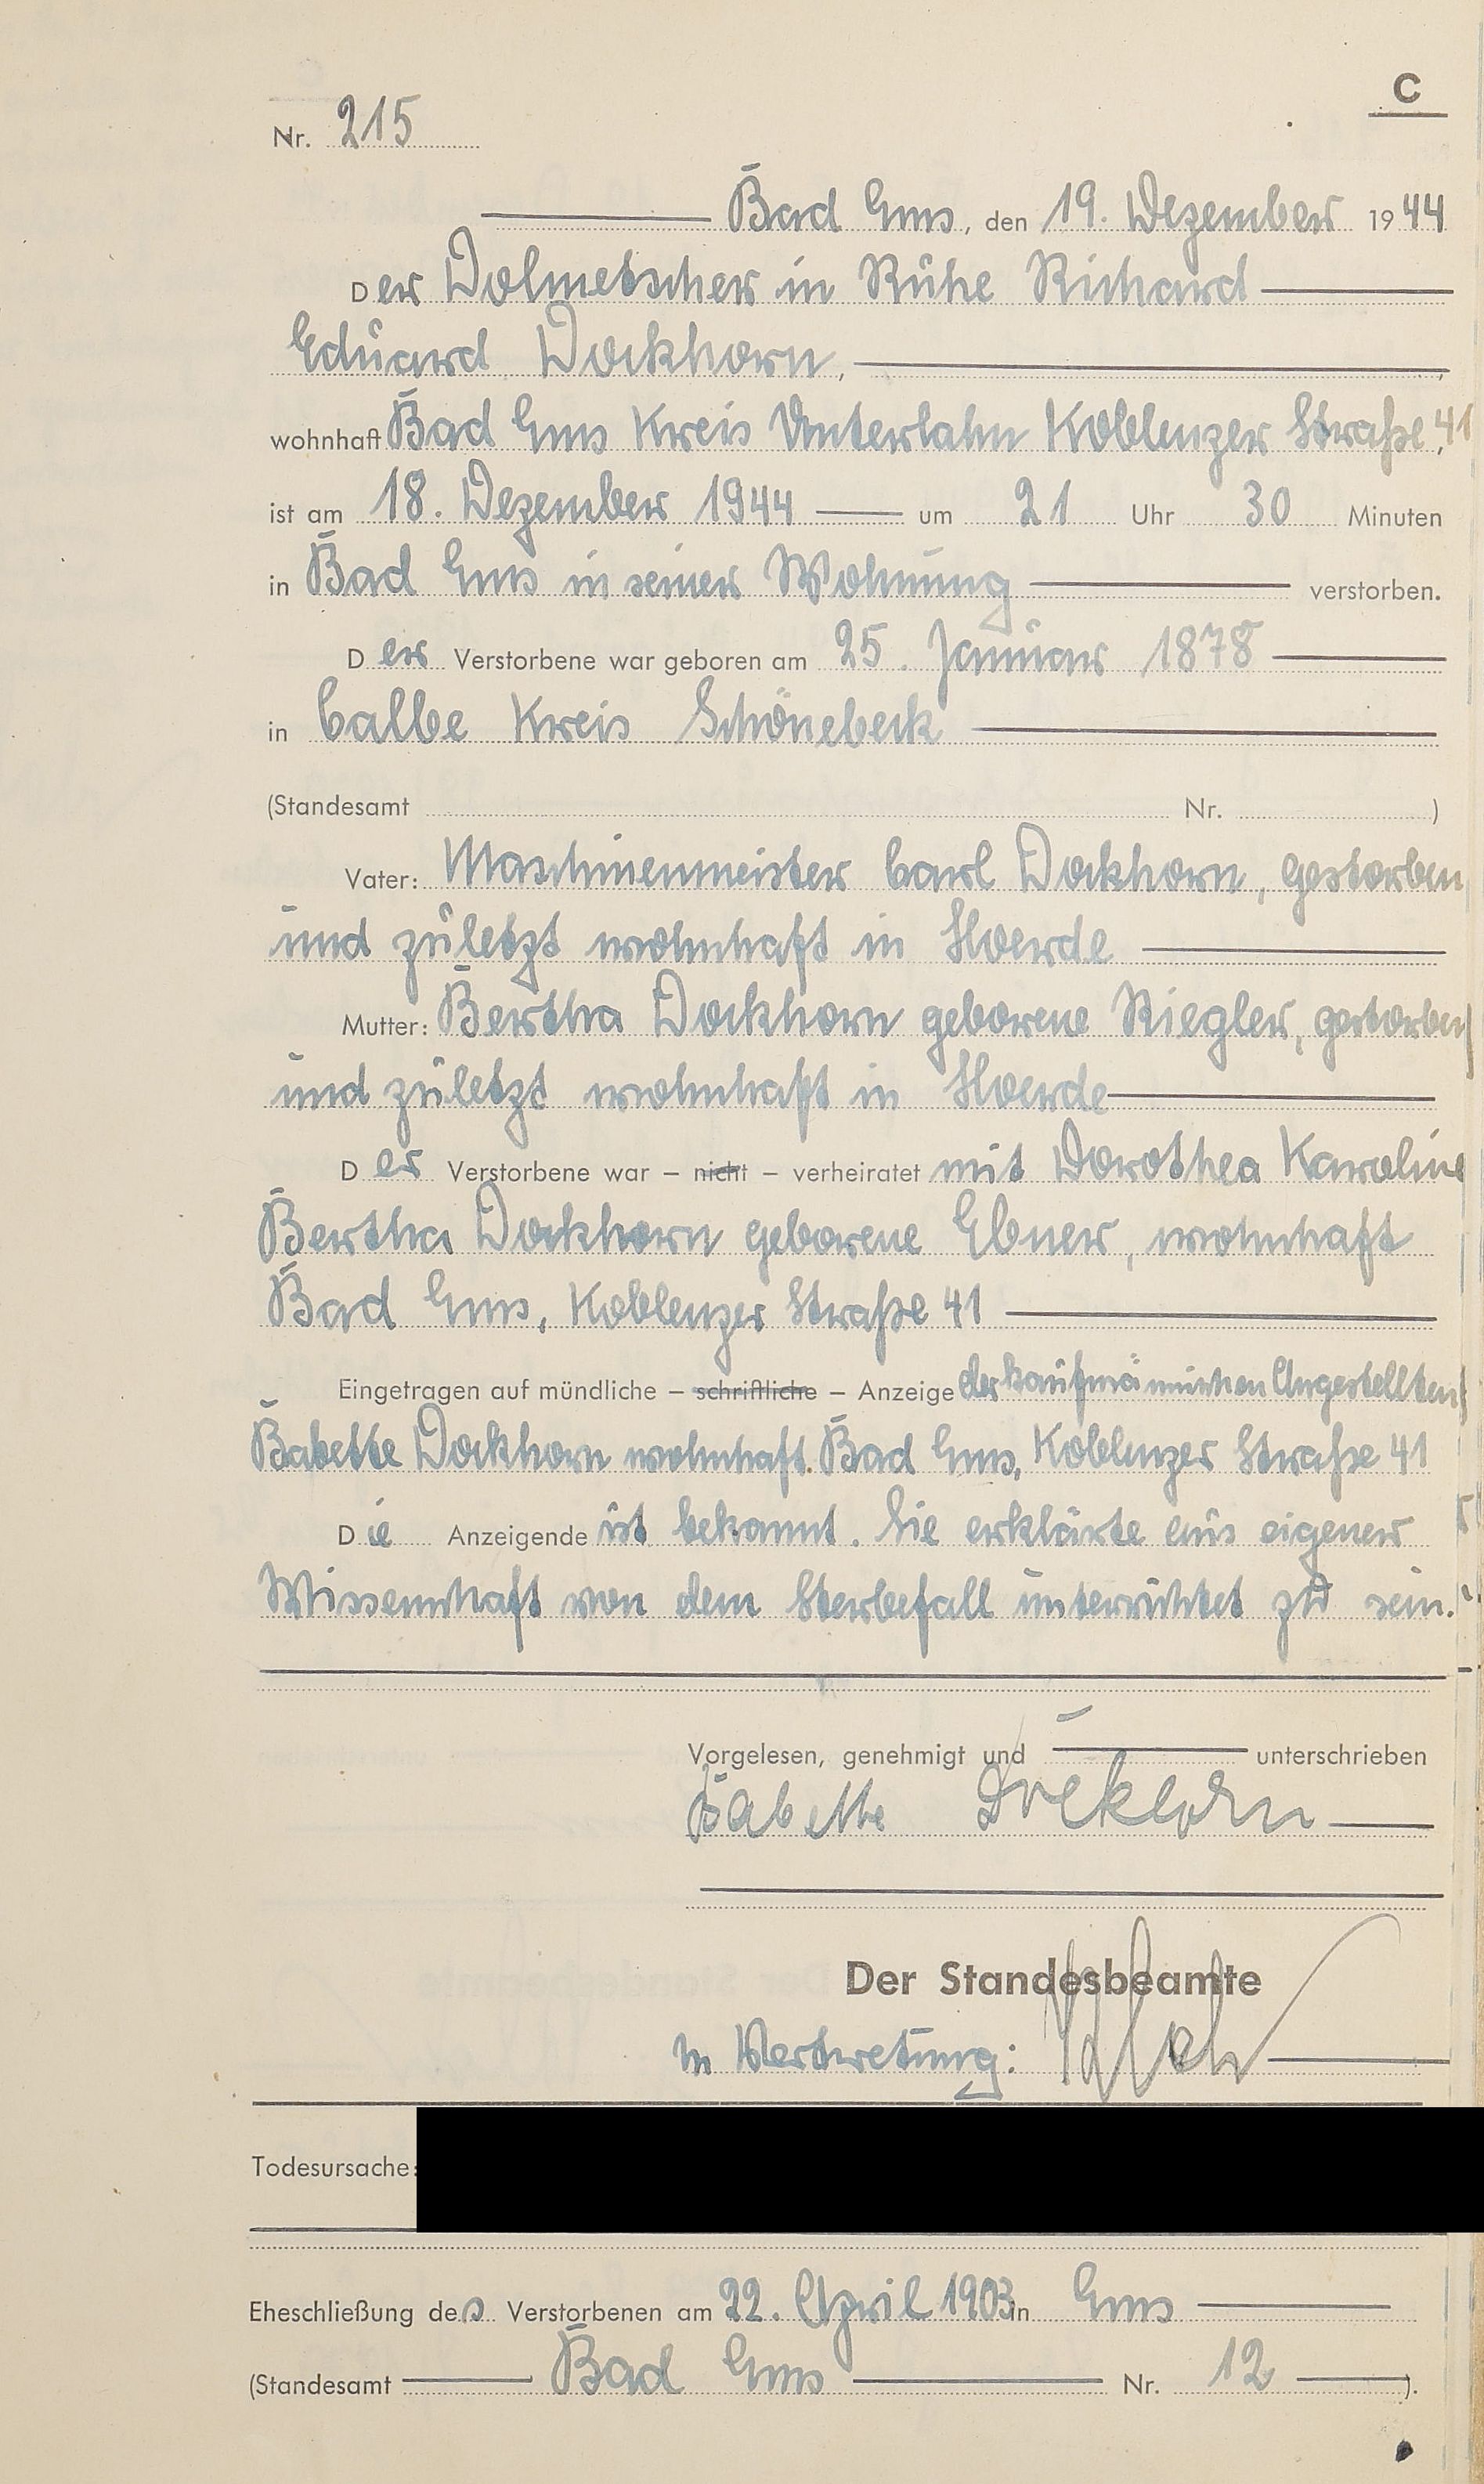 C
Nr. 215
Bad Ems, den 19. Dezember 1944
Der Dolmetscher in Ruhe Richard
Eduard Dockhorn,
wohnhaft Bad Ems Kreis Unterlahn Koblenzer Straße 41,
ist am 18. Dezember 1944 um 21 Uhr 30 Minuten
in Bad Ems in seiner Wohnung verstorben.
Der Verstorbene war geboren am 25. Januar 1878
in Calbe Kreis Schönebeck
(Standesamt Nr. )
Vater: Maschinenmeister Carl Dockhorn, gestorben
und zuletzt wohnhaft in Hoerde
Mutter: Bertha Dockhorn geborene Riegler, gestorben
und zuletzt wohnhaft in Hoerde
Der Verstorbene war – nicht – verheiratet mit Dorothea Karoline
Bertha Dockhorn geborene Ebner, wohnhaft
Bad Ems, Koblenzer Straße 41
Eingetragen auf mündliche – schriftliche – Anzeige der kaufmännischen Angestellten
Babette Dockhorn wohnhaft Bad Ems, Koblenzer Straße 41
Die Anzeigende ist bekannt. Sie erklärte aus eigener
Wissenschaft von dem Sterbefall unterrichtet zu sein.
Vorgelesen, genehmigt und unterschrieben
Babette Dockhorn
Der Standesbeamte
In Vertretung:
Todesursache:
Eheschließung des Verstorbenen am 22. April 1903 in Ems
(Standesamt Bad Ems Nr. 12 ).